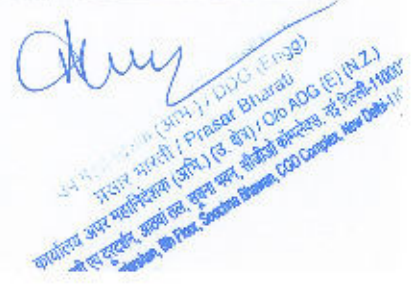 (अभि.) / DDG (Engg)
प्रसार भारती / Prasar Bharati
कार्यालय अपर महानिदेशक (अभि.) (उ. क्षेत्र) / O/o ADG (E) (N.Z.)
एवं दूरदर्शन, आठवां तल, सूचना भवन, सीजीओ कॉम्प्लेक्स, नई दिल्ली-11000
8th Floor, Soochna Bhawan, CGO Complex, New Delhi-11